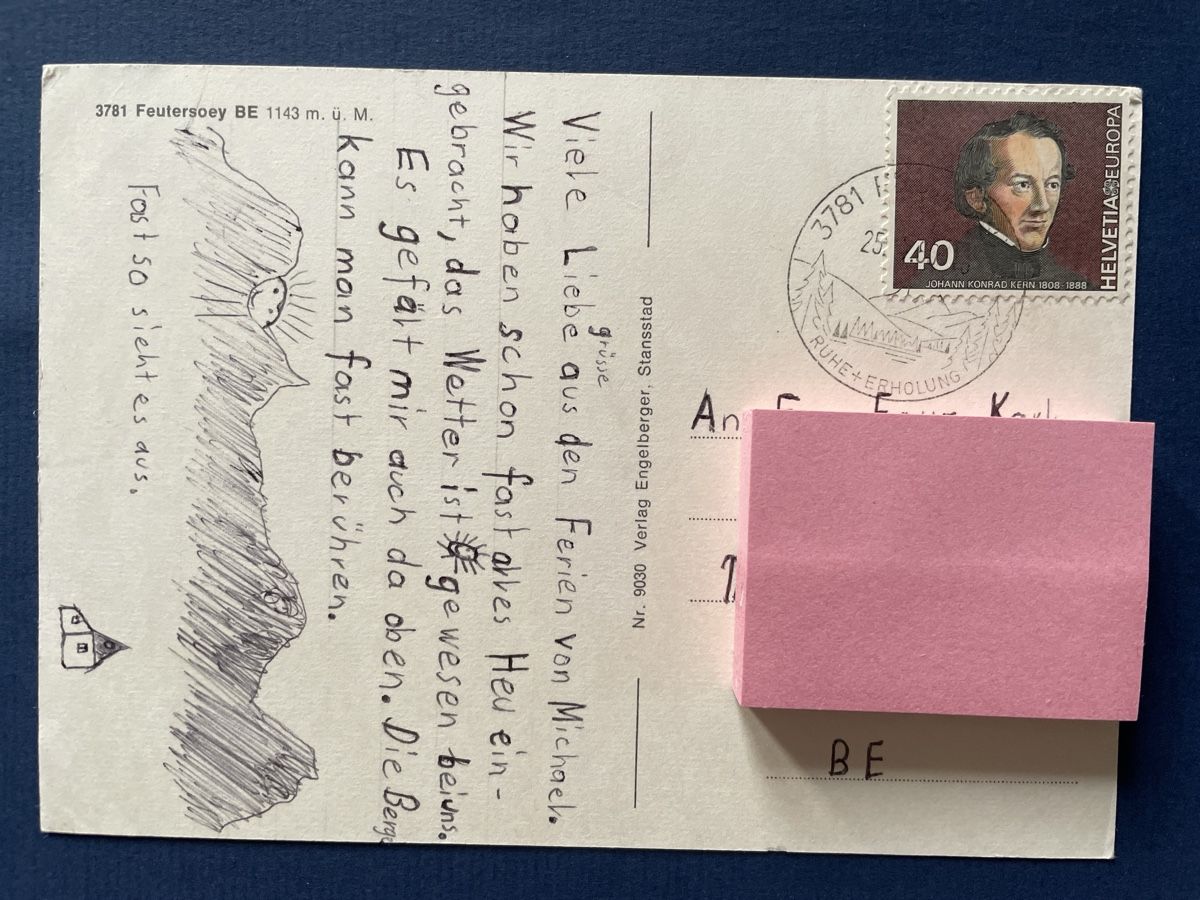 3781 Feutersoey BE 1143 m. ü. M.
Viele Liebe grüsse aus den Ferien von Michael.
Wir haben schon fast alles Heu ein-
gebracht, das Wetter ist gewesen bei uns.
Es gefält mir auch da oben. Die Berge
kann man fast berühren.
Fast so sieht es aus.
Nr. 9030 Verlag Engelberger, Stansstad
HELVETIA EUROPA
40
JOHANN KONRAD KERN 1808-1888
3781
25
RUHE + ERHOLUNG
An
BE